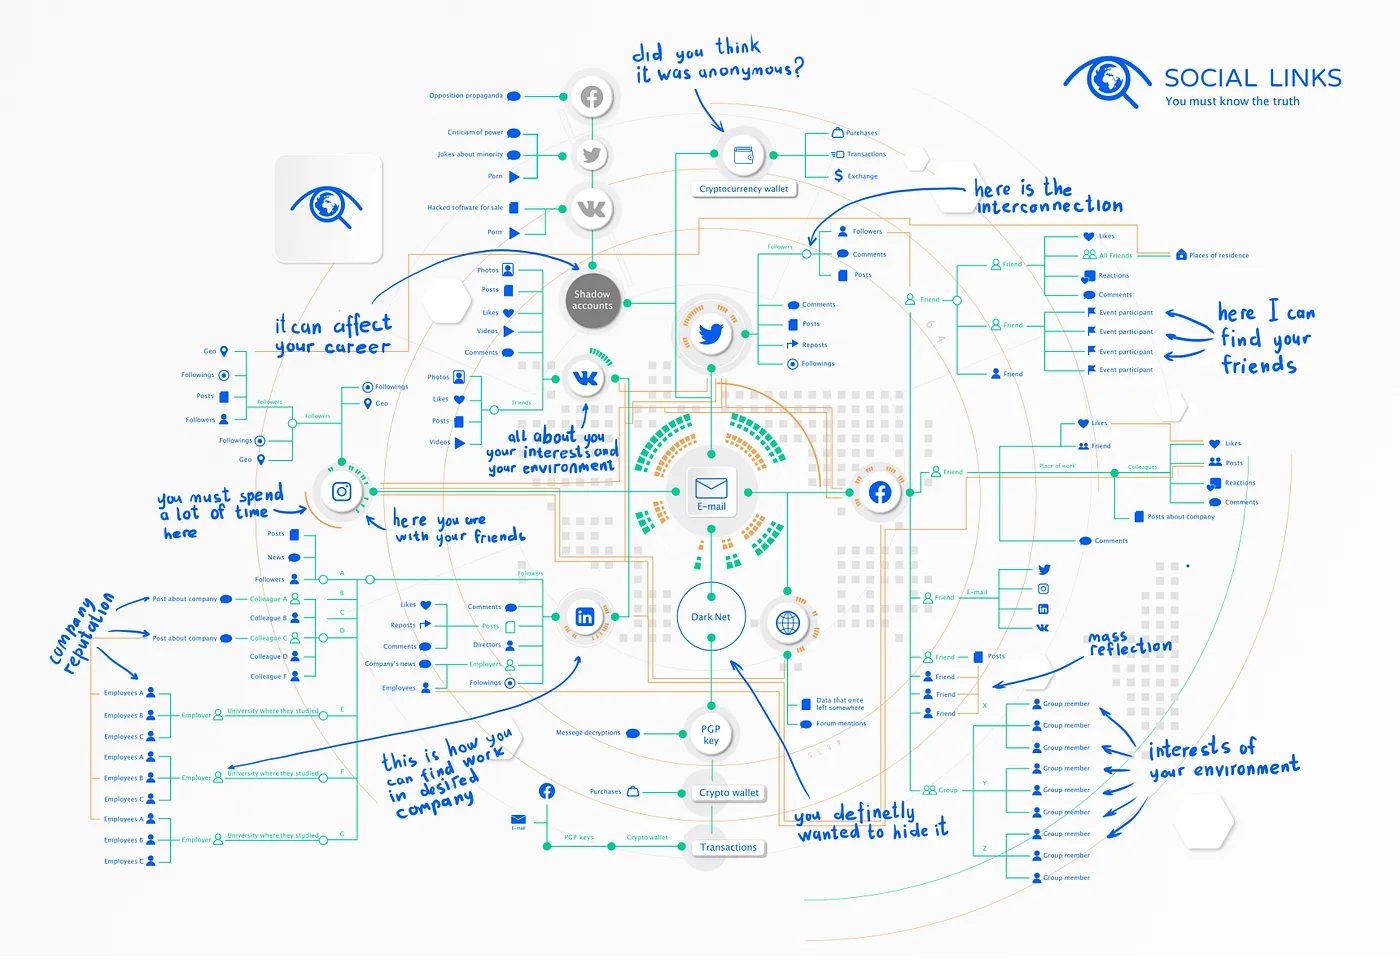 did you think
it was anonymous?
SOCIAL LINKS
You must know the truth
Opposition propaganda
Criticism of power
Jokes about minority
Porn
Hacked software for sale
Porn
Cryptocurrency wallet
Purchases
Transactions
Exchange
here is the
interconnection
Shadow
accounts
it can affect
your career
Photos
Posts
Likes
Videos
Comments
Photos
Likes
Posts
Videos
Friends
all about you
your interests and
your environment
Followers
Followers
Comments
Posts
Comments
Posts
Reposts
Followings
Friend
Friend
Likes
All Friends
Reactions
Comments
Places of residence
Friend
Event participant
Event participant
Event participant
Event participant
Friend
here I can
find your
friends
Geo
Followings
Posts
Followers
Followers
Followers
Followings
Geo
Followings
Geo
you must spend
a lot of time
here
here you are
with your friends
E-mail
Friend
Likes
Friend
Place of work
Colleagues
Likes
Posts
Reactions
Comments
Posts about company
Comments
Friend
E-mail
Friend
Posts
Friend
Friend
Friend
mass
reflection
X
Y
Z
Group
Group member
Group member
Group member
Group member
Group member
Group member
Group member
Group member
Group member
interests of
your environment
Posts
News
Followers
A
B
C
D
E
F
G
Followers
company
reputation
Post about company
Colleague A
Colleague B
Post about company
Colleague C
Colleague D
Colleague F
Employees A
Employees B
Employees C
Employer
University where they studied
Employees A
Employees B
Employees C
Employer
University where they studied
Employees A
Employees B
Employees C
Employer
University where they studied
Likes
Reposts
Comments
Company's news
Employees
Comments
Posts
Directors
Employers
Folowings
this is how you
can find work
in desired
company
Dark Net
Data that once
left somewhere
Forum mentions
PGP
key
Messege decryptions
Purchases
Crypto wallet
E-mail
PGP keys
Crypto wallet
Transactions
you definetly
wanted to hide it